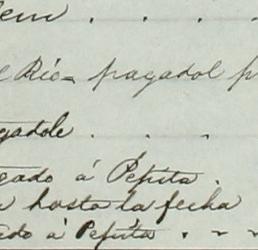 dem . . . .
l Rio= pagadol p
gadole . . .
gado á Pepita .
a hasta la fecha
ado a' Pepita . . .